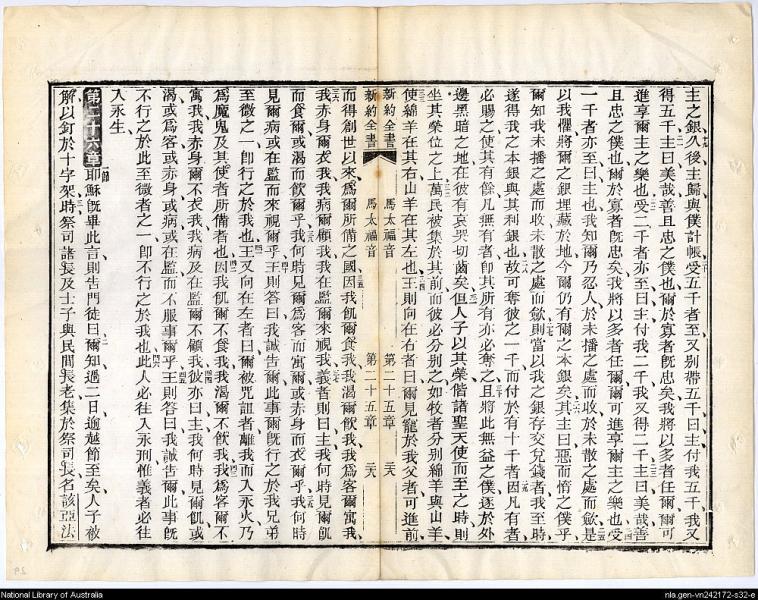 主之銀久後主歸與僕計帳受五千者至又別帶五千曰主付我五千我又
得五千主曰美哉善且忠之僕也爾於寡者旣忠矣我將以多者任爾爾可
進享爾主之樂也受二千者亦至曰主付我二千我又得二千主曰美哉善
且忠之僕也爾於寡者旣忠矣我將以多者任爾爾可進享爾主之樂也受
一千者亦至曰主也我知爾乃忍人於未播之處而收於未散之處而歛是
以我懼將爾之銀埋藏於地今爾仍有爾之本銀矣其主曰惡而惰之僕乎
爾知我未播之處而收未散之處而歛則當以我之銀存交兌錢者我至時
遂得我之本銀與其利銀也故可奪彼之一千而付於有十千者因凡有者
必賜之使其有餘凡無有者卽其所有亦必奪之且將此無益之僕逐於外
邊黑暗之地在彼有哀哭切齒矣但人子以其榮偕諸聖天使而至之時則
坐其榮位之上萬民被集於其前而彼必分別之如牧者分別綿羊與山羊
使綿羊在其右山羊在其左也王則向在右者曰爾見寵於我父者可進前
新約全書 馬太福音 第二十五章 二六
新約全書 馬太福音 第二十五章 二六
而得創世以來爲爾所備之國因我飢爾食我我渴爾飲我我爲客爾寓我
我赤身爾衣我我病爾顧我我在監爾來視我義者則曰主我何時見爾飢
而食爾或渴而飲爾乎我何時見爾爲客而寓爾或赤身而衣爾乎我何時
見爾病或在監而來視爾乎王則答曰我誠告爾此事爾旣行之於我兄弟
至微者之一卽行之於我也王又向在左者曰爾被咒詛者離我而入永火乃
爲魔鬼及其使者所備者也因我飢爾不食我我渴爾不飲我我爲客爾不
寓我我赤身爾不衣我我病及在監爾不顧我彼亦曰主我何時見爾飢或
渴或爲客或赤身或病或在監而不服事爾乎王則答曰我誠告爾此事旣
不行之於此至微者之一卽不行之於我也此人必往入永刑惟義者必往
入永生
第二十六章 耶穌旣畢此言則告門徒曰爾知過二日逾越節至矣人子被
解以釘於十字架時祭司諸長及士子與民間長老集於祭司長名該亞法
National Library of Australia
nla.gen-vn242172-s32-e